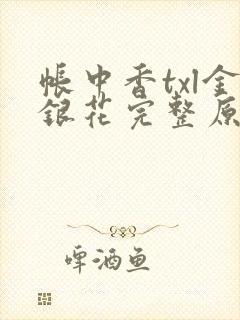 帐中香txl金
银花完整原
啤酒鱼